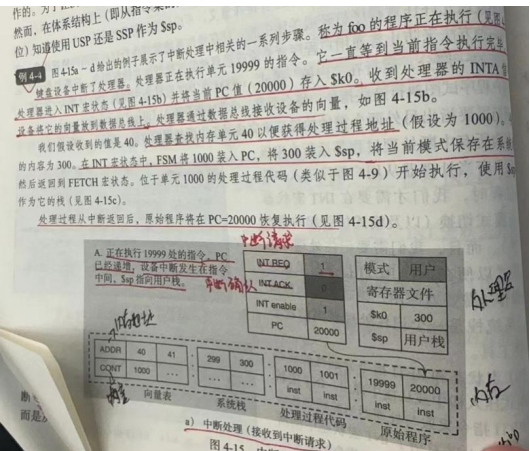 然而，在体系结构上（即从指令集的
位）知道使用USP还是SSP作为$sp。
例4-4 图4-15a－d给出的例子展示了中断处理中相关的一系列步骤。称为foo的程序正在执行（见图
键盘设备中断了处理器。处理器正在执行单元19999的指令。它一直等到当前指令执行完毕
处理器进入INT宏状态（见图4-15b）并将当前PC值（20000）存入$k0。收到处理器的INTA
设备将它的向量放到数据总线上。处理器通过数据总线接收设备的向量，如图4-15b。
我们假设收到的值是40。处理器查找内存单元40以便获得处理过程地址（假设为1000）。
的内容为300。在INT宏状态中，FSM将1000装入PC，将300装入$sp，将当前模式保存在系统
然后返回到FETCH宏状态。位于单元1000的处理过程代码（类似于图4-9）开始执行，使用$s
作为它的栈（见图4-15c）。
处理过程从中断返回后，原始程序将在PC=20000恢复执行（见图4-15d）。
中断请求
A. 正在执行19999处的指令，PC
已经递增，设备中断发生在指令
中间，$sp指向用户栈。
中断确认
INT REQ 1
INT ACK 0
INT enable 1
PC 20000
模式 用户
寄存器文件
$k0 300
$sp 用户栈
处理器
地址
ADDR 40 41 299 300 1000 1001 19999 20000
CONT 1000 ... inst inst inst inst
向量表 系统栈 处理过程代码 原始程序
内存
a）中断处理（接收到中断请求）
图4-15